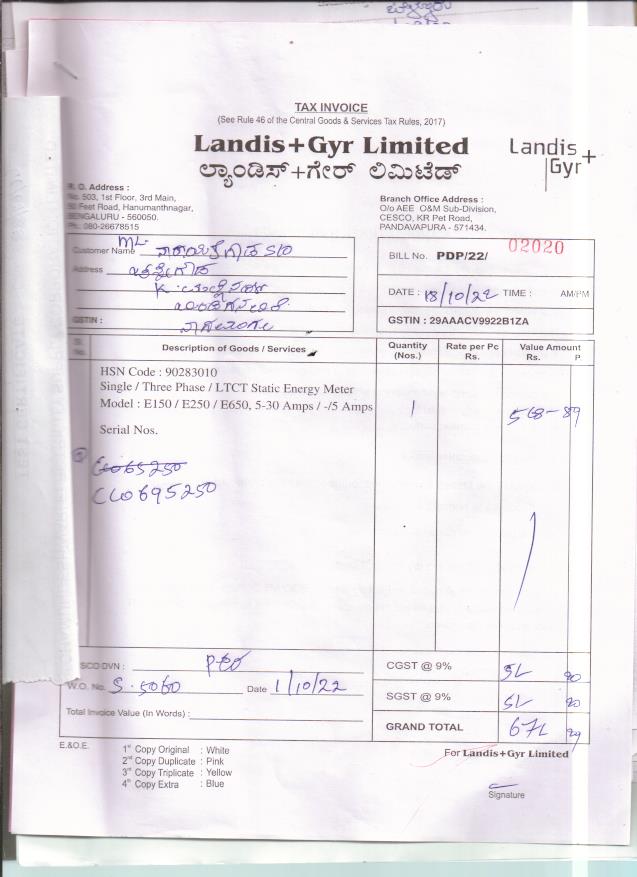 TAX INVOICE
(See Rule 46 of the Central Goods & Services Tax Rules, 2017)
Landis+Gyr Limited
ಲ್ಯಾಂಡಿಸ್+ಗೇರ್ ಲಿಮಿಟೆಡ್
Landis+
Gyr
R. O. Address :
No. 503, 1st Floor, 3rd Main,
Feet Road, Hanumanthnagar,
BENGALURU - 560050.
Ph. 080-26678515
Branch Office Address :
O/o AEE O&M Sub-Division,
CESCO, KR Pet Road,
PANDAVAPURA - 571434.
Customer Name
Address
GSTIN :
BILL No. PDP/22/ 02020
DATE : 18/10/22 TIME : AM/PM
GSTIN : 29AAACV9922B1ZA
Sl. No. Description of Goods / Services Quantity (Nos.) Rate per Pc Rs. Value Amount Rs. P
HSN Code : 90283010
Single / Three Phase / LTCT Static Energy Meter
Model : E150 / E250 / E650, 5-30 Amps / -/5 Amps 1 568-89
Serial Nos.
CL0695250
SCO DVN :
W.O. No. S. 5060 Date 1/10/22
Total Invoice Value (In Words) :
CGST @ 9% 51 20
SGST @ 9% 51 20
GRAND TOTAL 671 29
E.&O.E.
1st Copy Original : White
2nd Copy Duplicate : Pink
3rd Copy Triplicate : Yellow
4th Copy Extra : Blue
For Landis+Gyr Limited
Signature